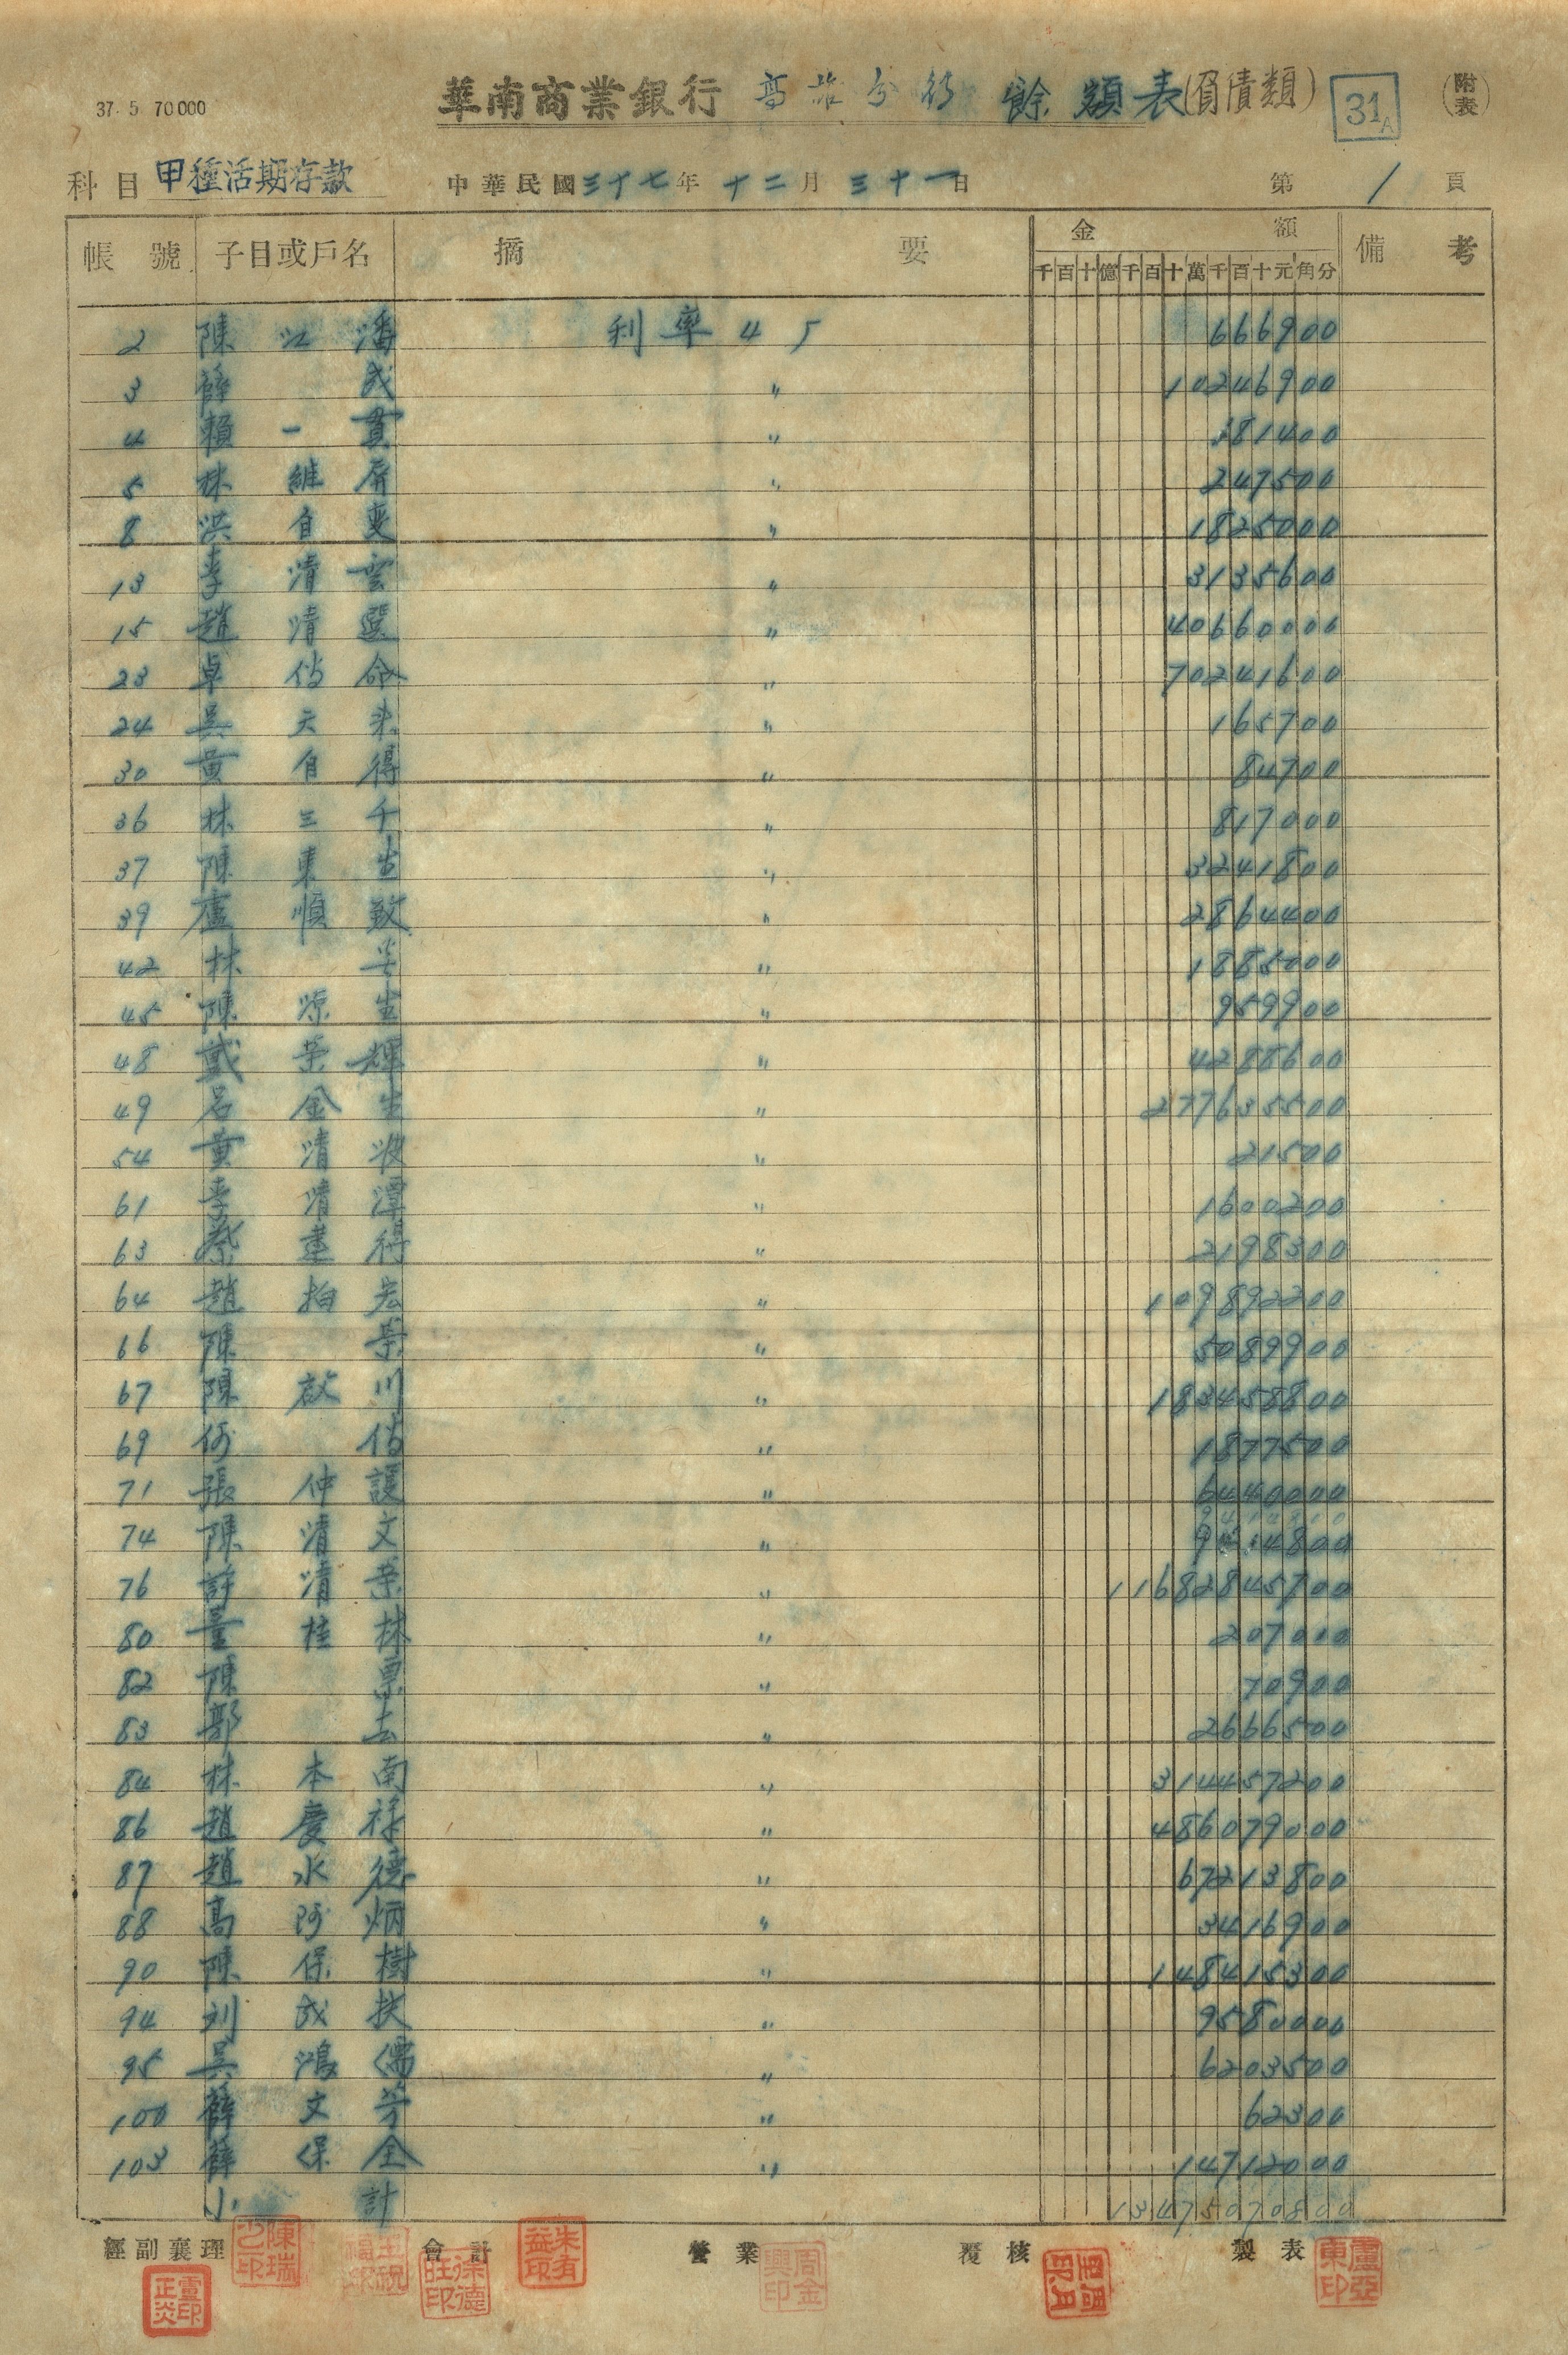 37. 5 70000
華南商業銀行 高雄分行 餘額表(負債類) 31A (附表)
科目 甲種活期存款 中華民國三十七年十二月三十一日 第 1 頁
帳號 子目或戶名 摘要 金額 備考
千百十億千百十萬千百十元角分
2 陳江潘 利率45 666900
3 薛成 〃 10246900
4 賴一貫 〃 381400
5 林維屏 〃 247500
8 洪自 〃 1825000
13 李清雲 〃 3135600
15 趙清選 〃 40660000
23 卓俏命 〃 70241600
24 吳天來 〃 165700
30 黃自得 〃 84700
36 林三千 〃 817000
37 陳東生 〃 3241800
39 盧順致 〃 2864400
42 林 〃 1885000
45 陳源生 〃 959900
48 戴榮輝 〃 4288600
49 呂金生 〃 277635500
54 黃清波 〃 21500
61 李清潭 〃 1600200
63 蔡連得 〃 2198300
64 趙柏宏 〃 109892200
66 陳榮 〃 5089900
67 陳啟川 〃 183458800
69 何俏 〃 1877500
71 張仲護 〃 6440000
74 陳清文 〃 9414800
76 許清榮 〃 11682845700
80 董桂林 〃 207000
82 陳票 〃 70900
83 郭去 〃 2666500
84 林本南 〃 314457200
86 趙慶祿 〃 486079000
87 趙水德 〃 67213800
88 高阿炳 〃 3416900
90 陳保樹 〃 148415300
94 刘成扶 〃 9580000
95 吳鴻儒 〃 6203500
100 薛文芳 〃 62300
103 薛保全 〃 14712000
小計 13475070800
經副襄理 會計 營業 覆核 製表
陳瑞 印 徐德旺印 朱有益印 周金興印 盧亞東印